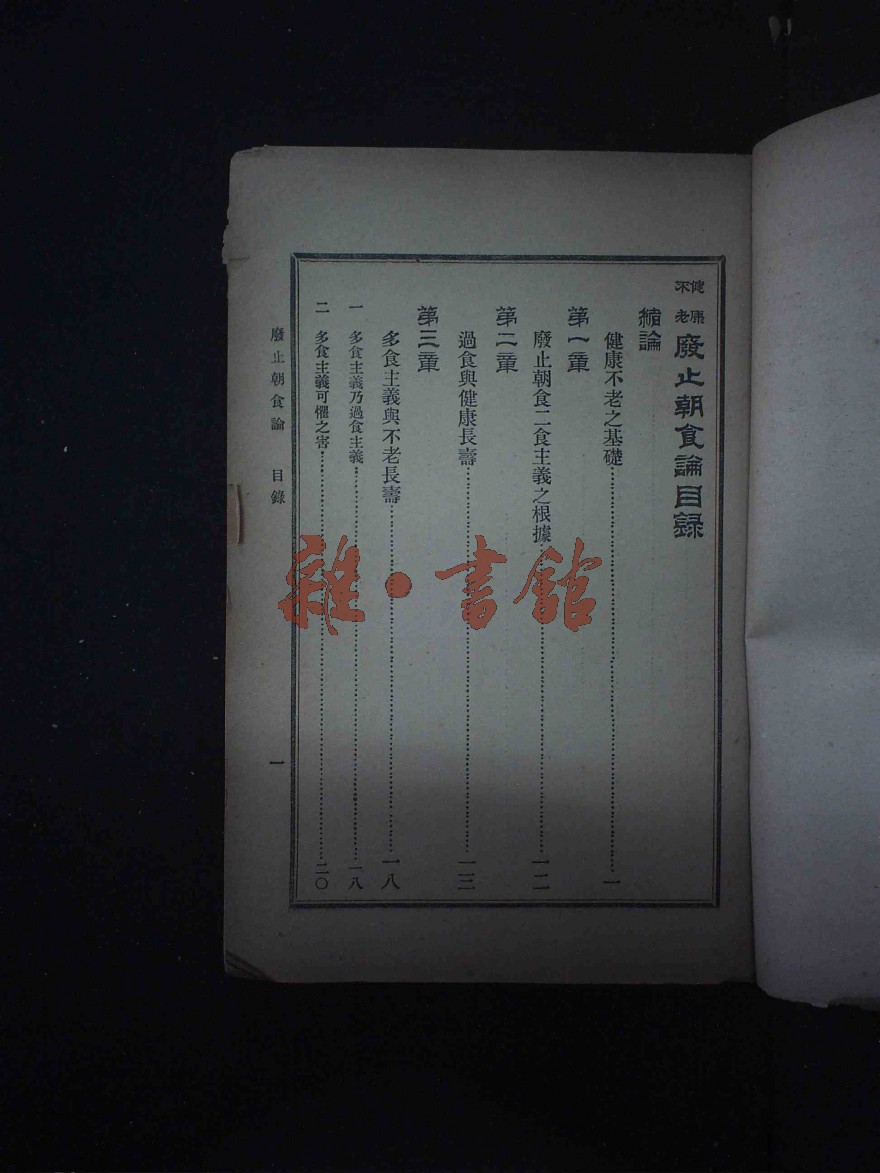 健康不老
廢止朝食論目録
緒論
健康不老之基礎……一
第一章
廢止朝食二食主義之根據……一二
第二章
過食與健康長壽……一三
第三章
多食主義與不老長壽……一八
一 多食主義乃過食主義……一八
二 多食主義可懼之害……二〇
廢止朝食論 目錄
一
雜·書館